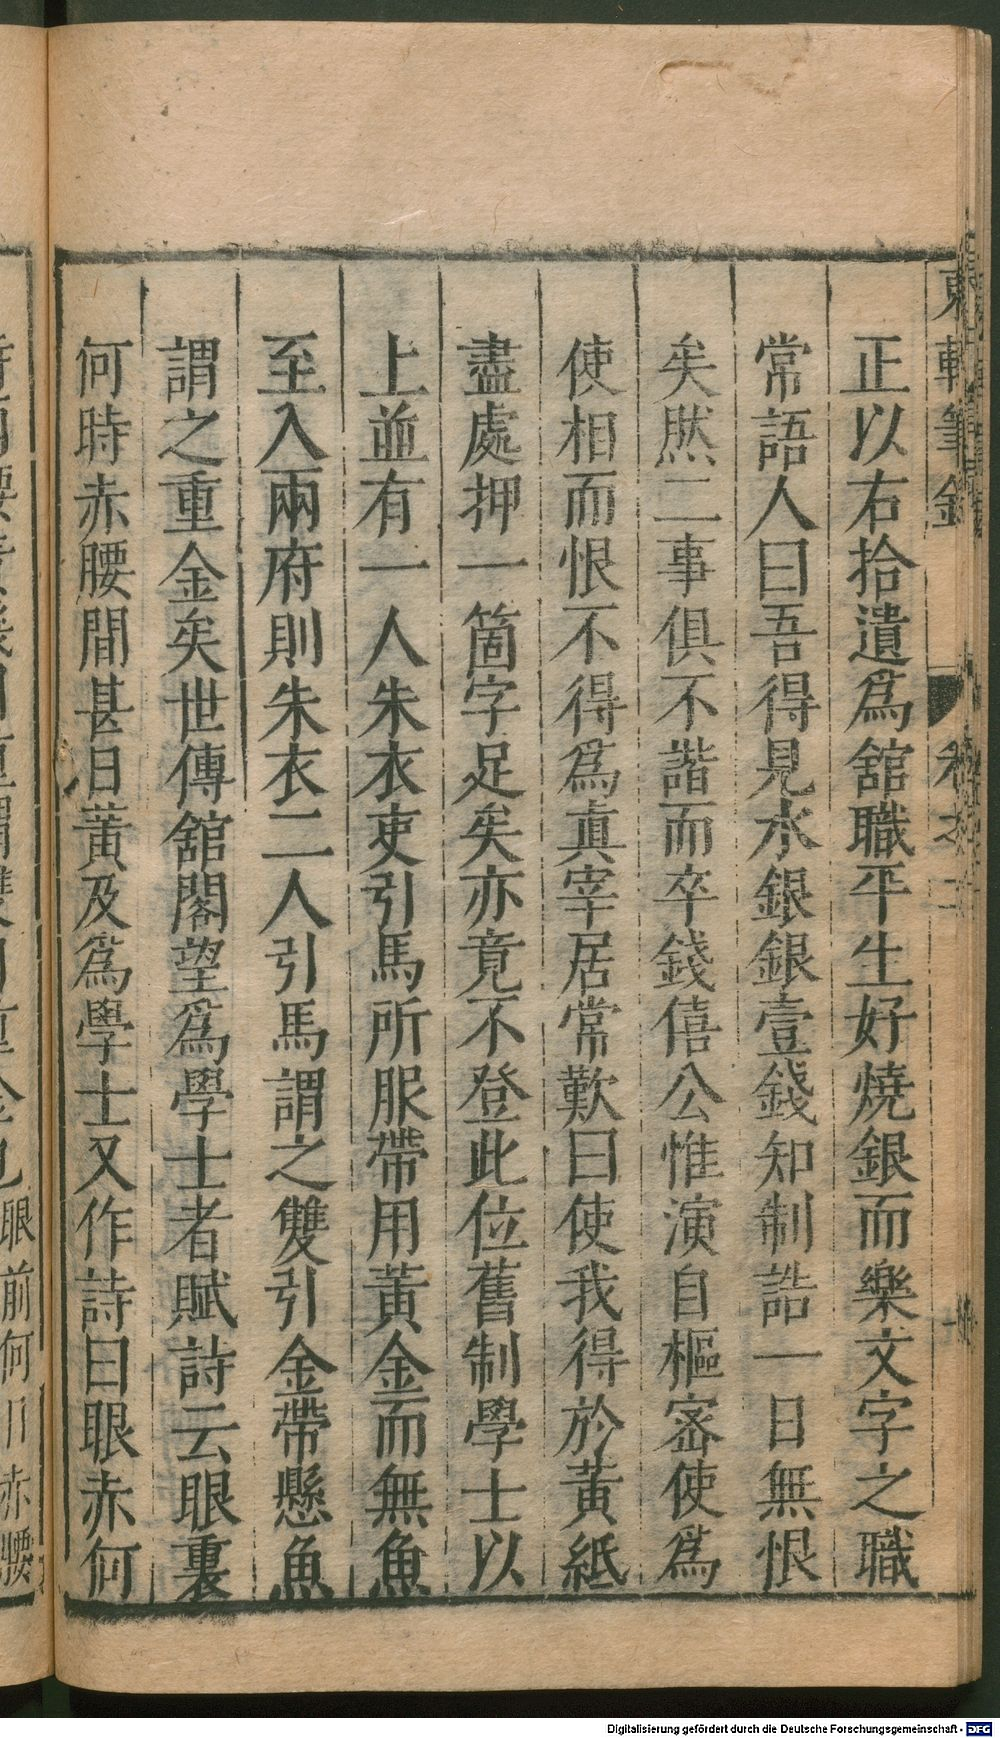 東軒筆錄 卷之二
正以右拾遺爲舘職平生好燒銀而樂文字之職
常語人曰吾得見水銀銀壹錢知制誥一日無恨
矣然二事俱不諧而卒錢僖公惟演自樞密使爲
使相而恨不得爲眞宰居常歎曰使我得於黃紙
盡處押一箇字足矣亦竟不登此位舊制學士以
上並有一人朱衣吏引馬所服帶用黃金而無魚
至入兩府則朱衣二人引馬謂之雙引金帶懸魚
謂之重金矣世傳舘閣望爲學士者賦詩云眼裏
何時赤腰間甚日黃及爲學士又作詩曰眼赤何
眼前何日赤腰
Digitalisierung gefördert durch die Deutsche Forschungsgemeinschaft - DFG